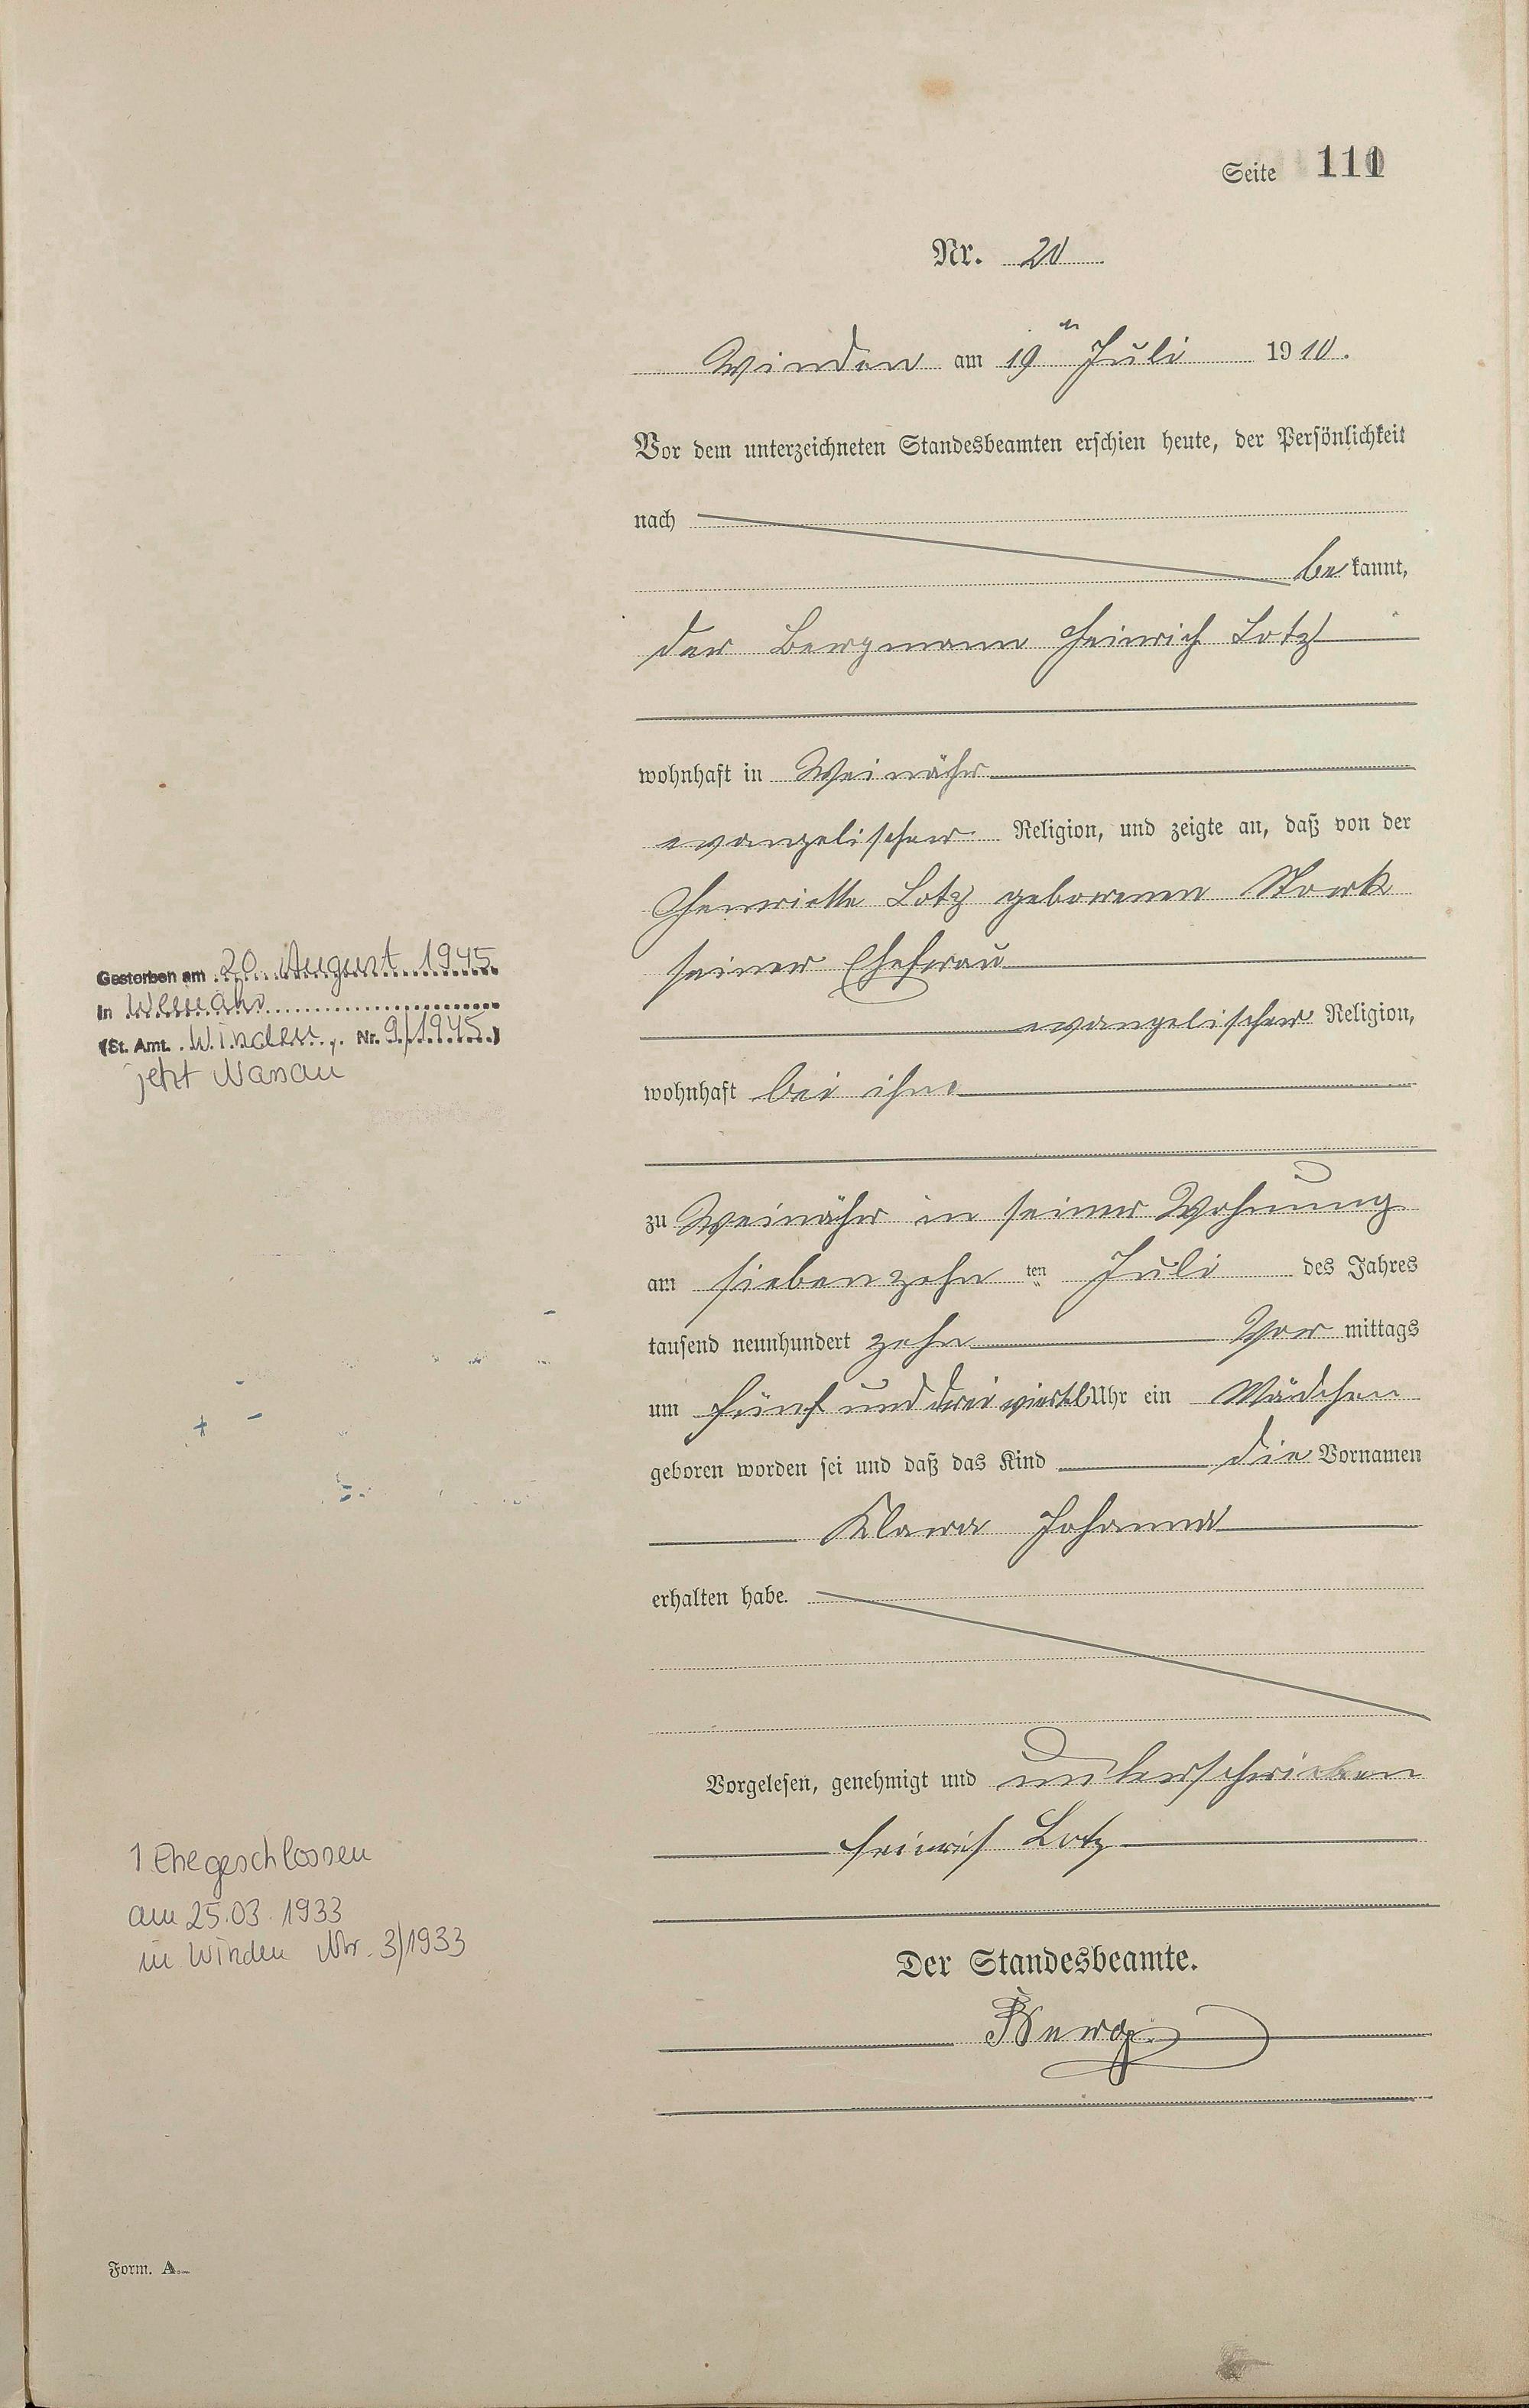 Seite 111
Nr. 20
Winden am 19ten Juli 1910.
Vor dem unterzeichneten Standesbeamten erschien heute, der Persönlichkeit
nach
bekannt,
der Bergmann Heinrich Lotz
wohnhaft in Weinähr
evangelischer Religion, und zeigte an, daß von der
Henriette Lotz geborenen Stork
seiner Ehefrau
evangelischer Religion,
wohnhaft bei ihm
zu Weinähr in seiner Wohnung
am siebenzehn ten Juli des Jahres
tausend neunhundert zehn Vormittags
um fünf und drei viertel Uhr ein Mädchen
geboren worden sei und daß das Kind die Vornamen
Klara Johanna
erhalten habe.
Vorgelesen, genehmigt und unterschrieben
Heinrich Lotz
Der Standesbeamte.
Gestorben am 20. August 1945
in Weinähr
(St. Amt. Winden, Nr. 9/1945)
jetzt Nassau
1 Ehe geschlossen
am 25.03.1933
in Winden Nr. 3/1933
Form. A.